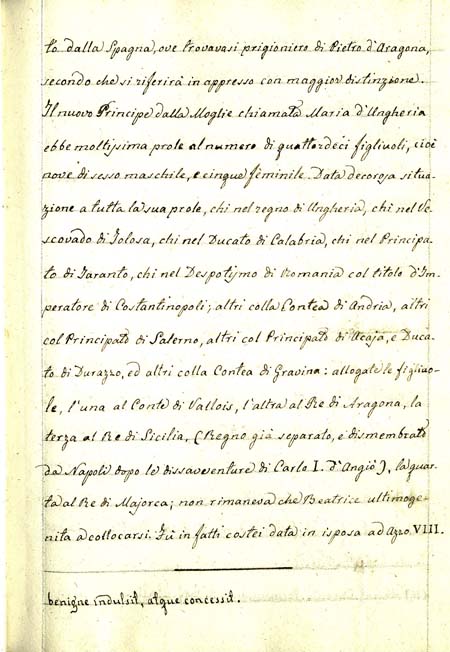 to dalla Spagna, ove trovavasi prigioniero di Pietro d'Aragona,
secondo che si riferirà in appresso con maggior distinzione.
Il nuovo Principe dalla Moglie chiamata Maria d'Ungheria
ebbe moltissima prole al numero di quattordeci figliuoli, cioè
nove di sesso maschile, e cinque feminile. Data decorosa situa-
zione a tutta la sua prole, chi nel regno di Ungheria, chi nel Ve-
scovado di Tolosa, chi nel Ducato di Calabria, chi nel Principa-
to di Taranto, chi nel Despotismo di Romania col titolo d'Im-
peratore di Costantinopoli; altri colla Contea di Andria, altri
col Principato di Salerno, altri col Principato di Acaja, e Duca-
to di Durazzo, ed altri colla Contea di Gravina: allogate le figliuo-
le, l'una al Conte di Vallois, l'altra al Re di Aragona, la
terza al Re di Sicilia, (Regno già separato, e dismembrato
da Napoli dopo le disavventure di Carlo I. d'Angiò), la quar-
ta al Re di Majorca; non rimaneva che Beatrice ultimoge-
nita a collocarsi. Fù in fatti costei data in isposa ad Azzo VIII.
benigne indulsit, atque concessit.